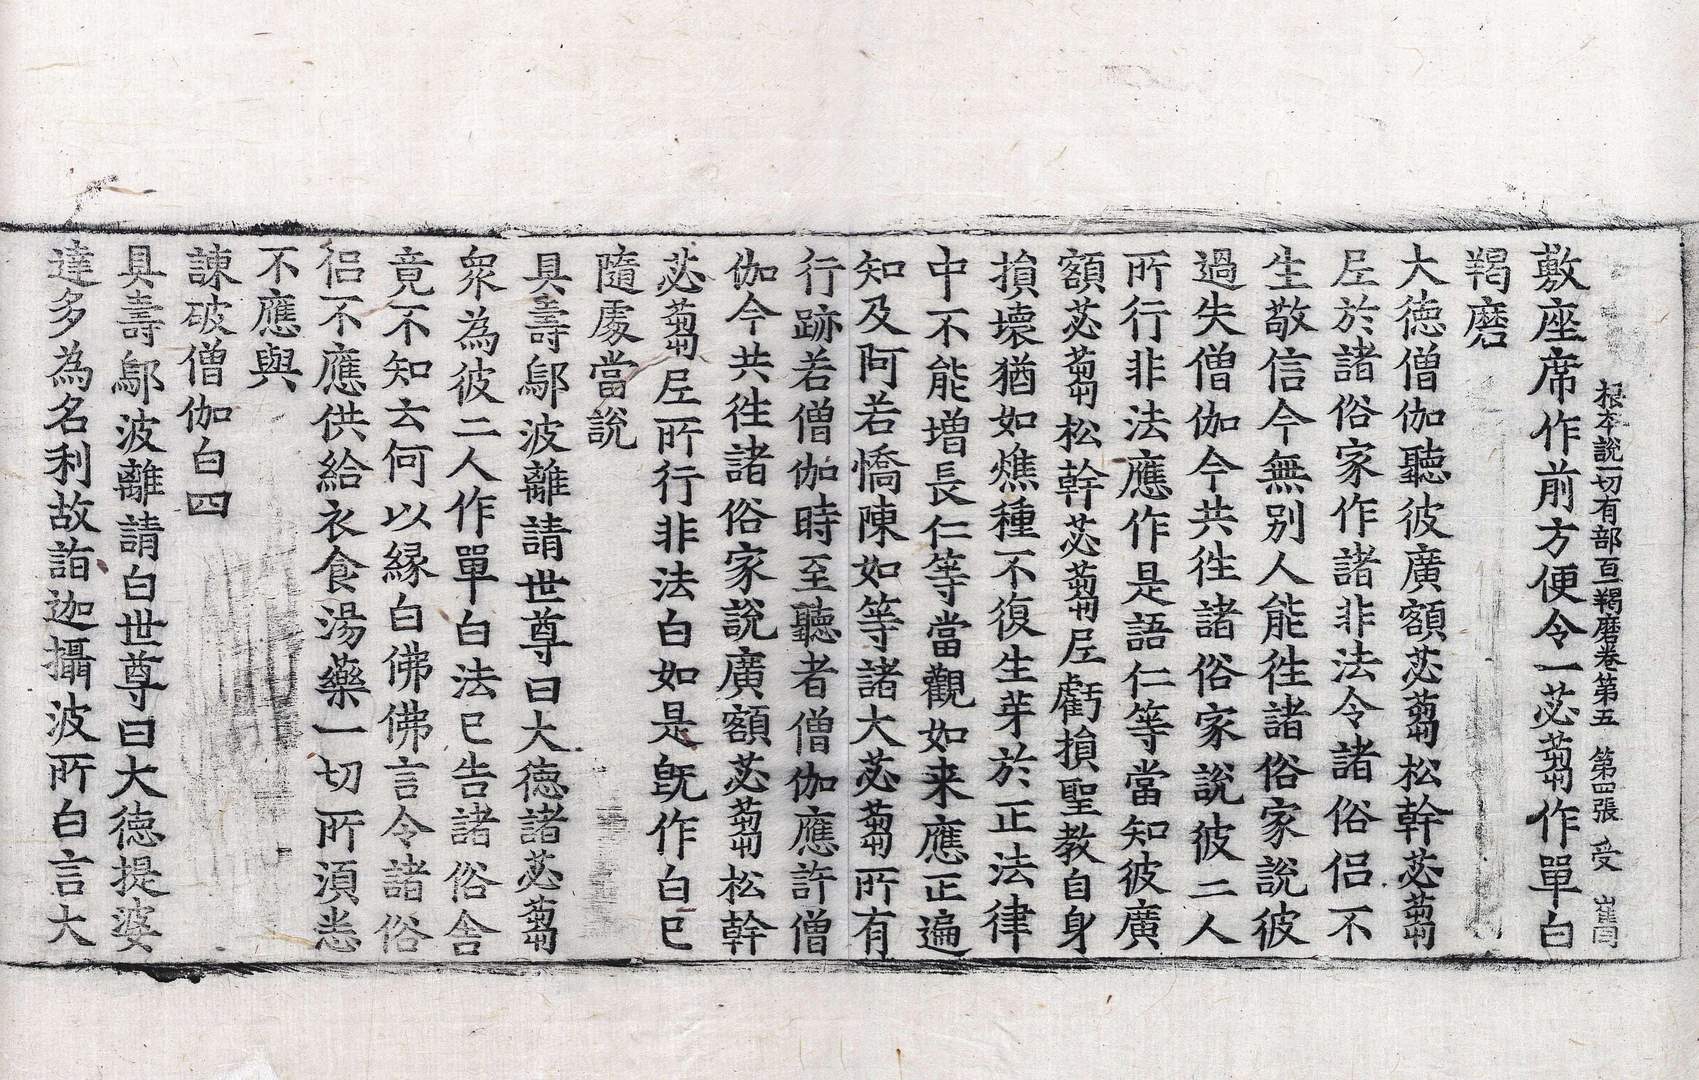 根本說一切有部百一羯磨卷第五　第四張　受
敷座席作前方便令一苾蒭作單白
羯磨
大德僧伽聽彼廣額苾蒭松幹苾蒭
尼於諸俗家作諸非法令諸俗侶不
生敬信今無別人能往諸俗家說彼
過失僧伽今共往諸俗家說彼二人
所行非法應作是語仁等當知彼廣
額苾蒭松幹苾蒭尼虧損聖教自身
損壞猶如燋種不復生芽於正法律
中不能增長仁等當觀如来應正遍
知及阿若憍陳如等諸大苾蒭所有
行跡若僧伽時至聽者僧伽應許僧
伽今共往諸俗家說廣額苾蒭松幹
苾蒭尼所行非法白如是旣作白已
隨處當說
具壽鄔波離請世尊曰大德諸苾蒭
衆為彼二人作單白法已告諸俗舍
竟不知云何以緣白佛佛言令諸俗
侶不應供給衣食湯藥一切所須悉
不應與
諫破僧伽白四
具壽鄔波離請白世尊曰大德提婆
達多為名利故詣迦攝波所白言大